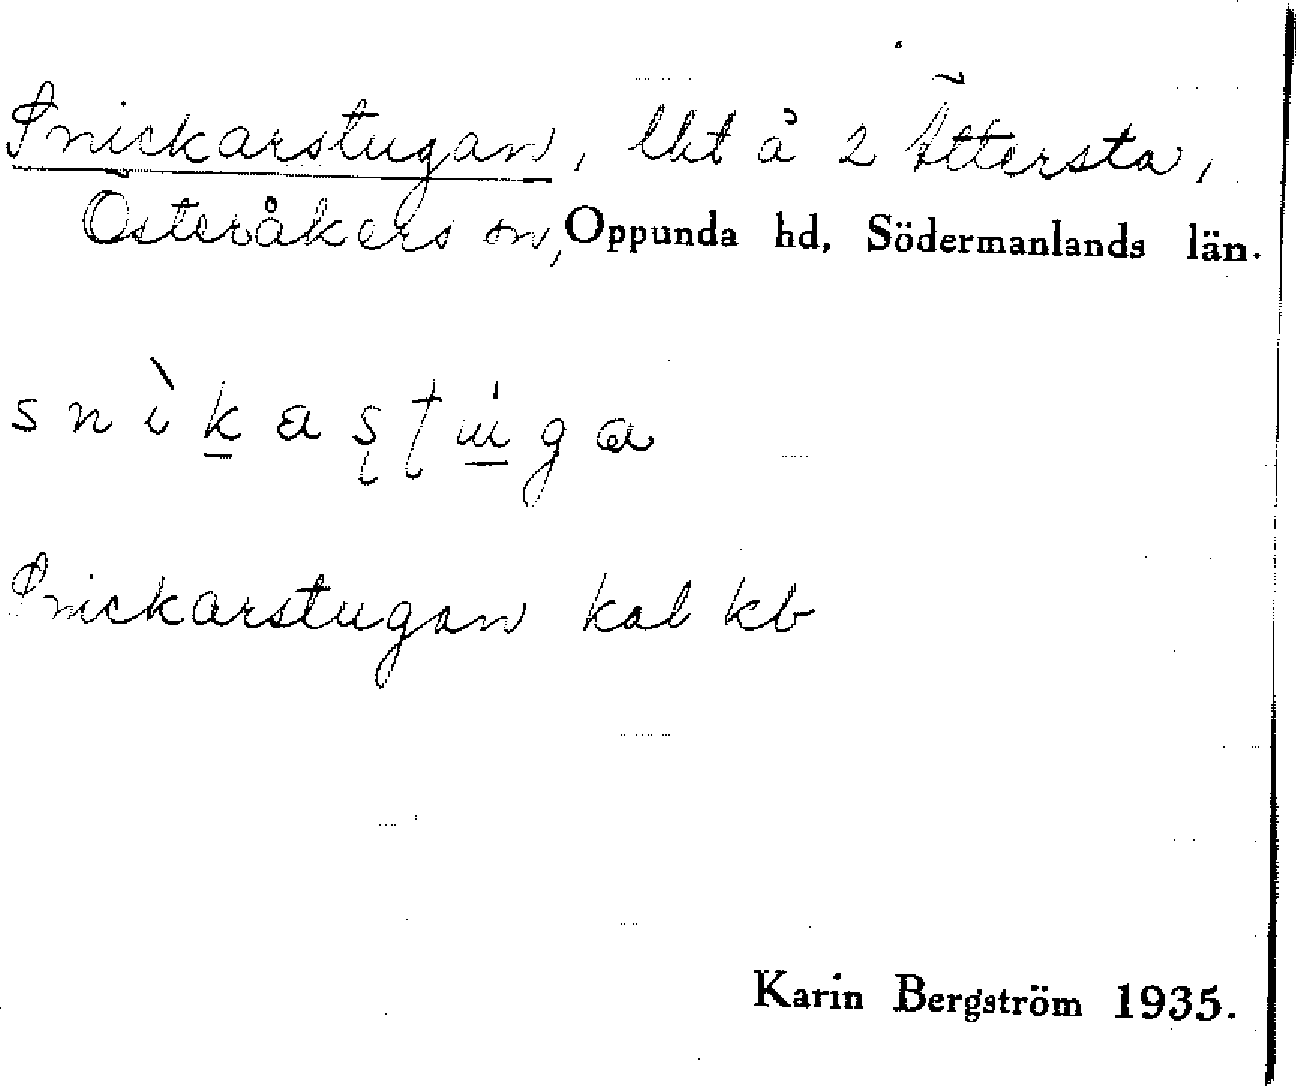 Snickarstugan, lht å 2 Ättersta,
Österåkers sn, Oppunda hd, Södermanlands län.
snìkaʂʈu̍ga
Snickarstugan kal kb
Karin Bergström 1935.